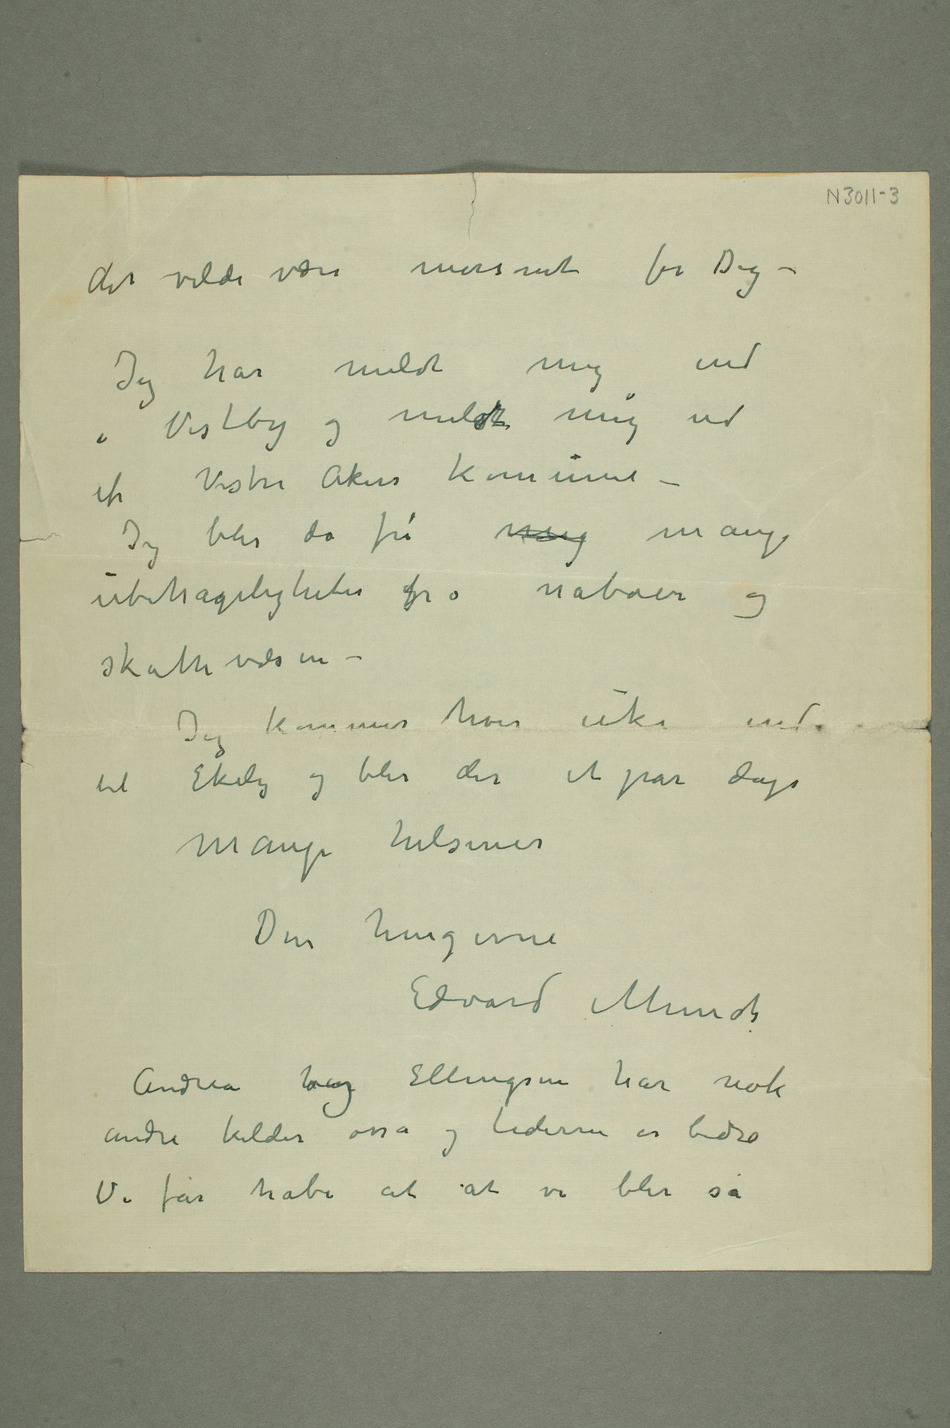 N3011-3
det vilde være morsomt for Dig –
Jeg har meldt mig ind
i Vestby og meldt mig ud
af Vestre Akers Kommune –
Jeg blir da fri mange
ubehageligheder fra naboer og
skattevæsen –
Jeg kommer hver uke ind
til Ekely og blir der et par dage
Mange hilsener
Din hengivne
Edvard Munch
Andrea og Ellingsen har nok
andre kilder osså og tiderne er bedre
Vi får håbe at at vi blir så